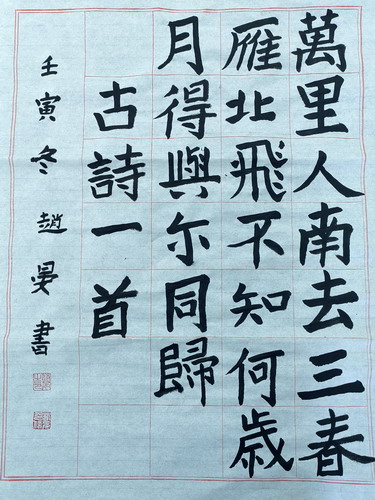 萬里人南去三春
雁北飛不知何歲
月得與尔同歸
古詩一首
壬寅冬趙晏書